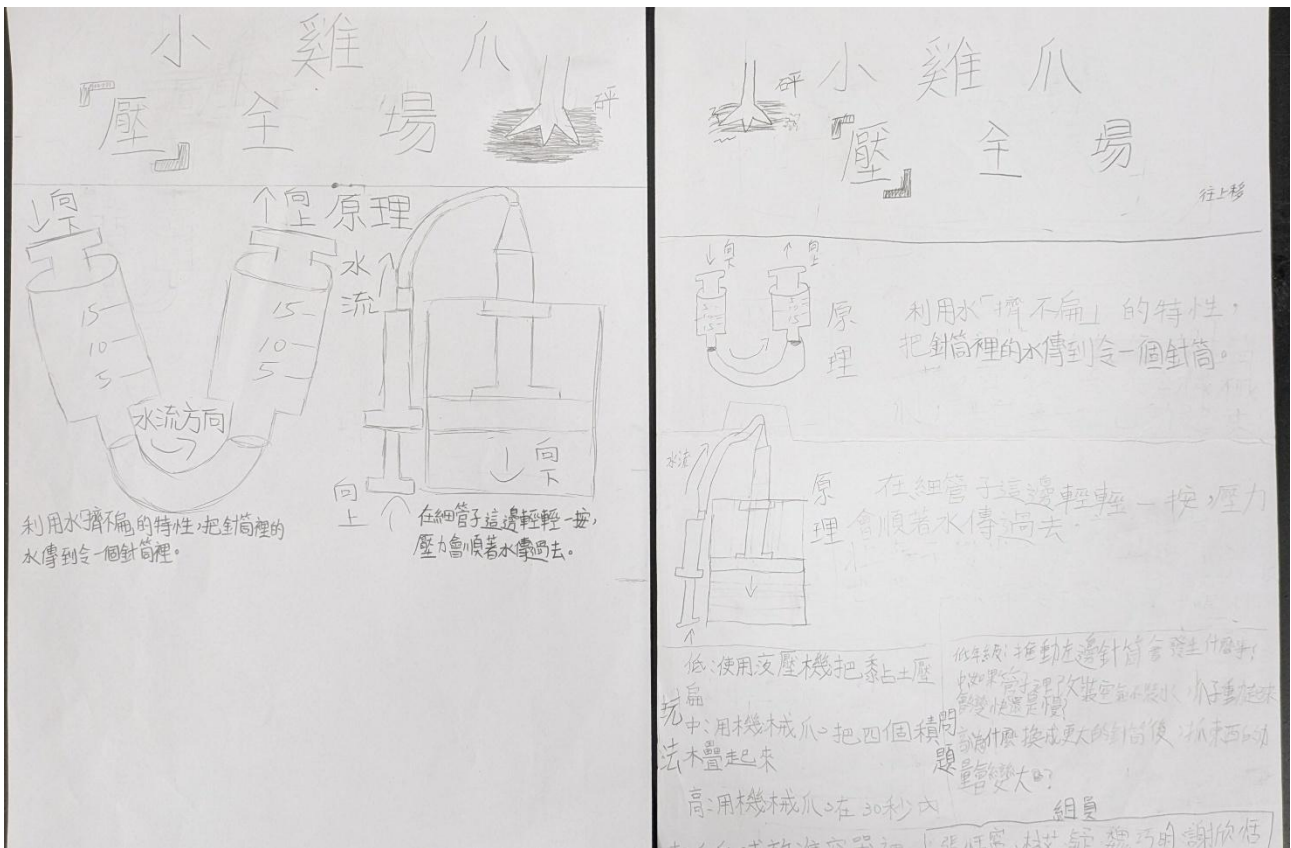 小雞爪
「壓」全場
砰
↓向下
↑向上
原理
15
10
5
15
10
5
水流方向
利用水「擠不扁」的特性,把針筒裡的
水傳到令一個針筒裡。
水流
向上
向下
在細管子這邊輕輕一按,
壓力會順著水傳過去。
砰
小雞爪
「壓」全場
往上移
↓向下
↑向上
原理
利用水「擠不扁」的特性,
把針筒裡的水傳到令一個針筒。
水流
原理
在細管子這邊輕輕一按,壓力
會順著水傳過去.
玩法
低:使用液壓機把黏土壓
扁
中:用機械爪把四個積
木疊起來
高:用機械爪在30秒內
問題
低年級:推動左邊針筒會發生什麼事?
中:如果管子裡改裝空氣不裝水,爪子動起來
會變快還是慢?
高:為什麼換成更大的針筒後,抓東西的力
量會變大?
組員